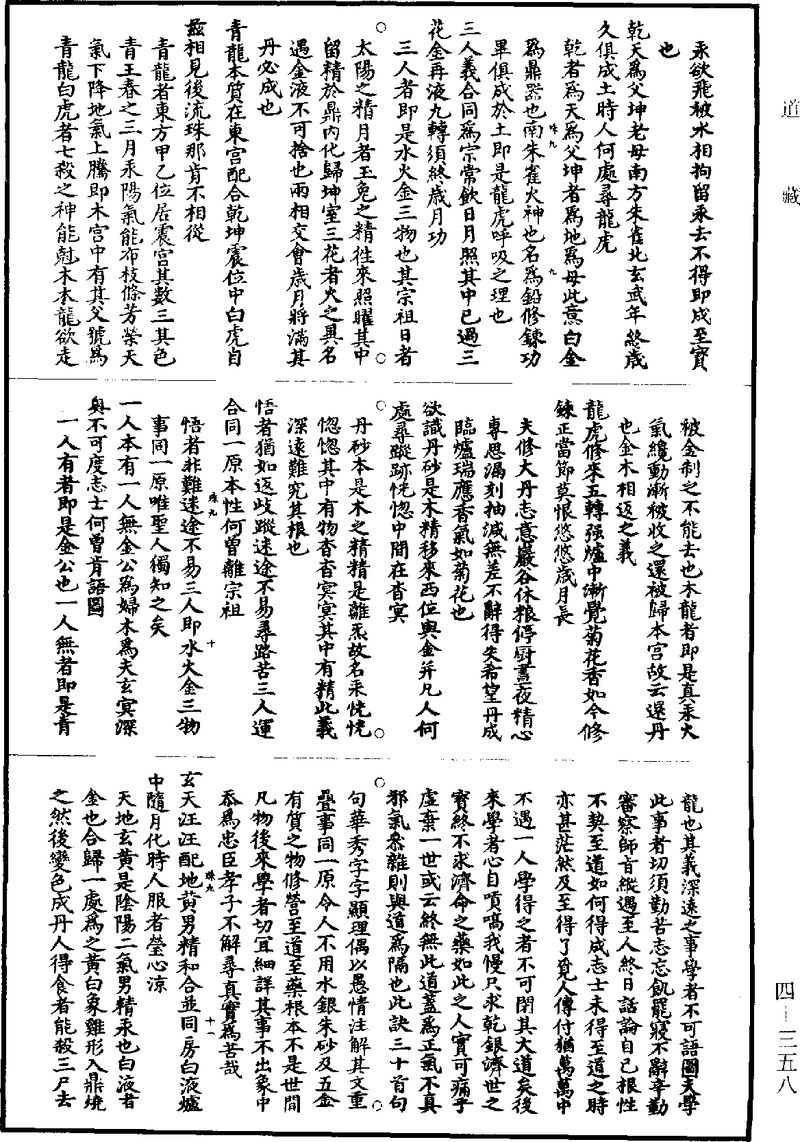 道藏
汞欲飛被水相拘留汞去不得即成至寳
也
乾天爲父坤老母南方朱雀北玄武年終歲
久俱成土時人何處尋龍虎
乾者爲天爲父坤者爲地爲母此意白金
爲鼎器也南朱雀火神也名爲鉛修鍊功
畢俱成於土即是龍虎呼吸之理也
三人義合同爲宗常飲日月照其中已過三
花金再液九轉須終歲月功
三人者即是水火金三物也其宗祖日者
太陽之精月者玉兔之精徃來照曜其中
留精於鼎內化歸坤室三花者火之異名
遇金液不可捨也兩相交會歲月將滿其
丹必成也
青龍本質在東宫配合乾坤震位中白虎自
兹相見後流珠那肯不相從
青龍者東方甲乙位居震宫其數三其色
青王春之三月汞陽氣能布枝條芳榮天
氣下降地氣上騰即木宫中有其父號爲
青龍白虎者七殺之神能尅木木龍欲走
被金制之不能去也木龍者即是真汞火
氣纔動漸被收之還被歸本宫故云還丹
也金木相返之義
龍虎修來五轉强爐中漸覺菊花香如今修
鍊正當節莫恨悠悠歲月長
夫修大丹志意巖谷休粮停厨晝夜精心
專思漏刻抽減無差不辭得失希望丹成
臨爐瑞應香氣如菊花也
欲識丹砂是木精移來西位與金并凡人何
處尋蹤跡恍惚中間在杳冥
丹砂本是木之精精是離炁故名汞恍恍
惚惚其中有物杳杳冥冥其中有精此義
深遠難究其根也
悟者猶如返歧蹤迷途不易尋路苦三人運
合同一原本性何曾離宗祖
悟者非難迷途不易三人即水火金三物
事同一原唯聖人獨知之矣
一人本有一人無金公爲婦木爲夫玄冥深
奥不可度志士何曾肯語圖
一人有者即是金公也一人無者即是青
龍也其義深遠之事學者不可語圖夫學
此事者切須勤苦志忘飢罷寢不辭辛勤
審察師旨縱遇至人終日話論自己根性
不契至道如何得成志士未得至道之時
亦甚茫然及至得了覓人傳付猶萬萬中
不遇一人學得之者不可閉其大道矣後
來學者心自嗔嗃我慢只求乾銀濟世之
寳終不求濟命之藥如此之人實可痛乎
虚棄一世或云終無此道蓋爲正氣不真
邪氣叅雜則與道爲隔也此訣三十首句
句華秀字字顯理偶以愚情注解其文重
疊事同一原令人不用水銀朱砂及五金
有質之物修營至道至藥根本不是世間
凡物後來學者切冝細詳其事不出象中
忝爲忠臣孝子不解尋真實爲苦哉
玄天汪汪配地黄男精和合並同房白液爐
中隨月化時人服者瑩心涼
天地玄黄是隂陽二氣男精汞也白液者
金也合歸一處爲之黄白象雞形入鼎燒
之然後變色成丹人得食者能殺三尸去
四—三五八